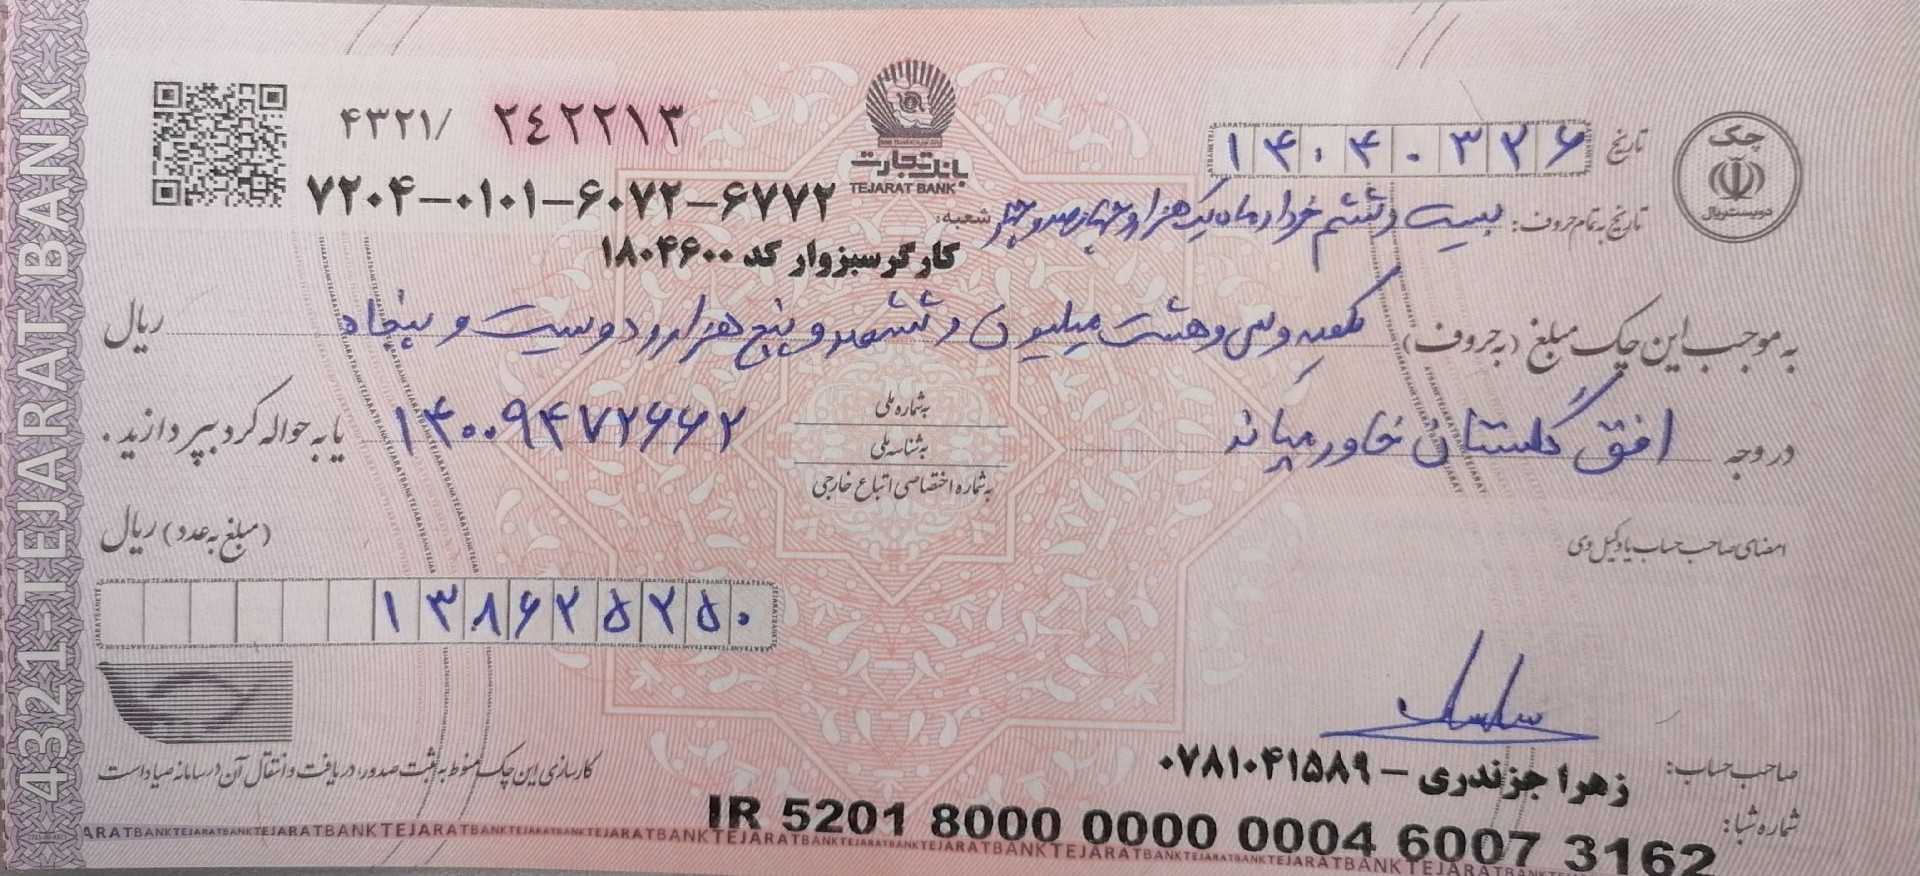 4321-TEJARAT BANK
۴۳۲۱/ ۲٤۲۲۱۳
۷۲۰۴-۰۱۰۱-۶۰۷۲-۶۷۷۲
بانک تجارت
TEJARAT BANK
شعبه:
کارگر سبزوار کد ۱۸۰۴۶۰۰
چک
دویست ریال
تاریخ ۱۴۰۴۰۳۲۶
تاریخ به تمام حروف: بیست و ششم خرداد ماه یک هزار و چهارصد و چهار
به موجب این چک مبلغ (به حروف) یکصد و سی و هشت میلیون و ششصد و پنج هزار و دویست و پنجاه ریال
در وجه افق گلستان خاورمیانه
به شماره ملی
به شناسه ملی
به شماره اختصاصی اتباع خارجی
۱۴۰۰۹۴۷۲۶۶۲ یا به حواله کرد بپردازید.
امضای صاحب حساب یا وکیل وی
(مبلغ به عدد) ریال
۱۳۸۶۲۵۲۵۰
صاحب حساب: زهرا جزندری - ۰۷۸۱۰۴۱۵۸۹
کارسازی این چک منوط به ثبت صدور، دریافت و انتقال آن در سامانه صیاد است
شماره شبا: IR 5201 8000 0000 0004 6007 3162